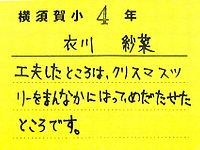 横須賀小4年
衣川 紗菜
工夫したところは、クリスマスツ
リーをまんなかにはって、めだたせた
ところです。